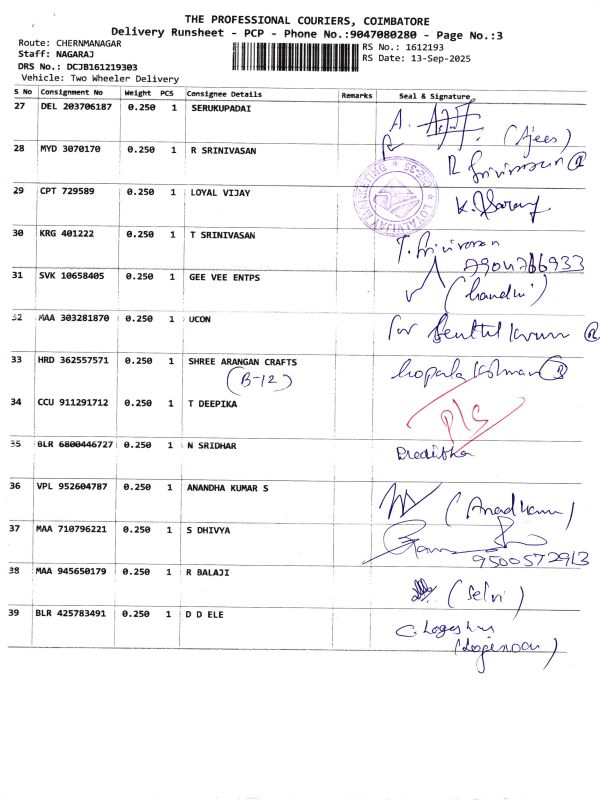 THE PROFESSIONAL COURIERS, COIMBATORE
Delivery Runsheet - PCP - Phone No.:9047080280 - Page No.:3
Route: CHERNMANAGAR
RS No.: 1612193
Staff: NAGARAJ
RS Date: 13-Sep-2025
DRS No.: DCJB161219303
Vehicle: Two Wheeler Delivery
S No Consignment No Weight PCS Consignee Details Remarks Seal & Signature
27 DEL 203706187 0.250 1 SERUKUPADAI
A. (Ajees)
28 MYD 3070170 0.250 1 R SRINIVASAN
R Srinivasan
29 CPT 729589 0.250 1 LOYAL VIJAY
K.
30 KRG 401222 0.250 1 T SRINIVASAN
T. Srinivasan
31 SVK 10658405 0.250 1 GEE VEE ENTPS
(Chandni)
32 MAA 303281870 0.250 1 UCON
for Senthil Kumar
33 HRD 362557571 0.250 1 SHREE ARANGAN CRAFTS
(B-12)
34 CCU 911291712 0.250 1 T DEEPIKA
P/S
35 BLR 6800446727 0.250 1 N SRIDHAR
36 VPL 952604787 0.250 1 ANANDHA KUMAR S
37 MAA 710796221 0.250 1 S DHIVYA
9500572913
38 MAA 945650179 0.250 1 R BALAJI
(Selvi)
39 BLR 425783491 0.250 1 D D ELE